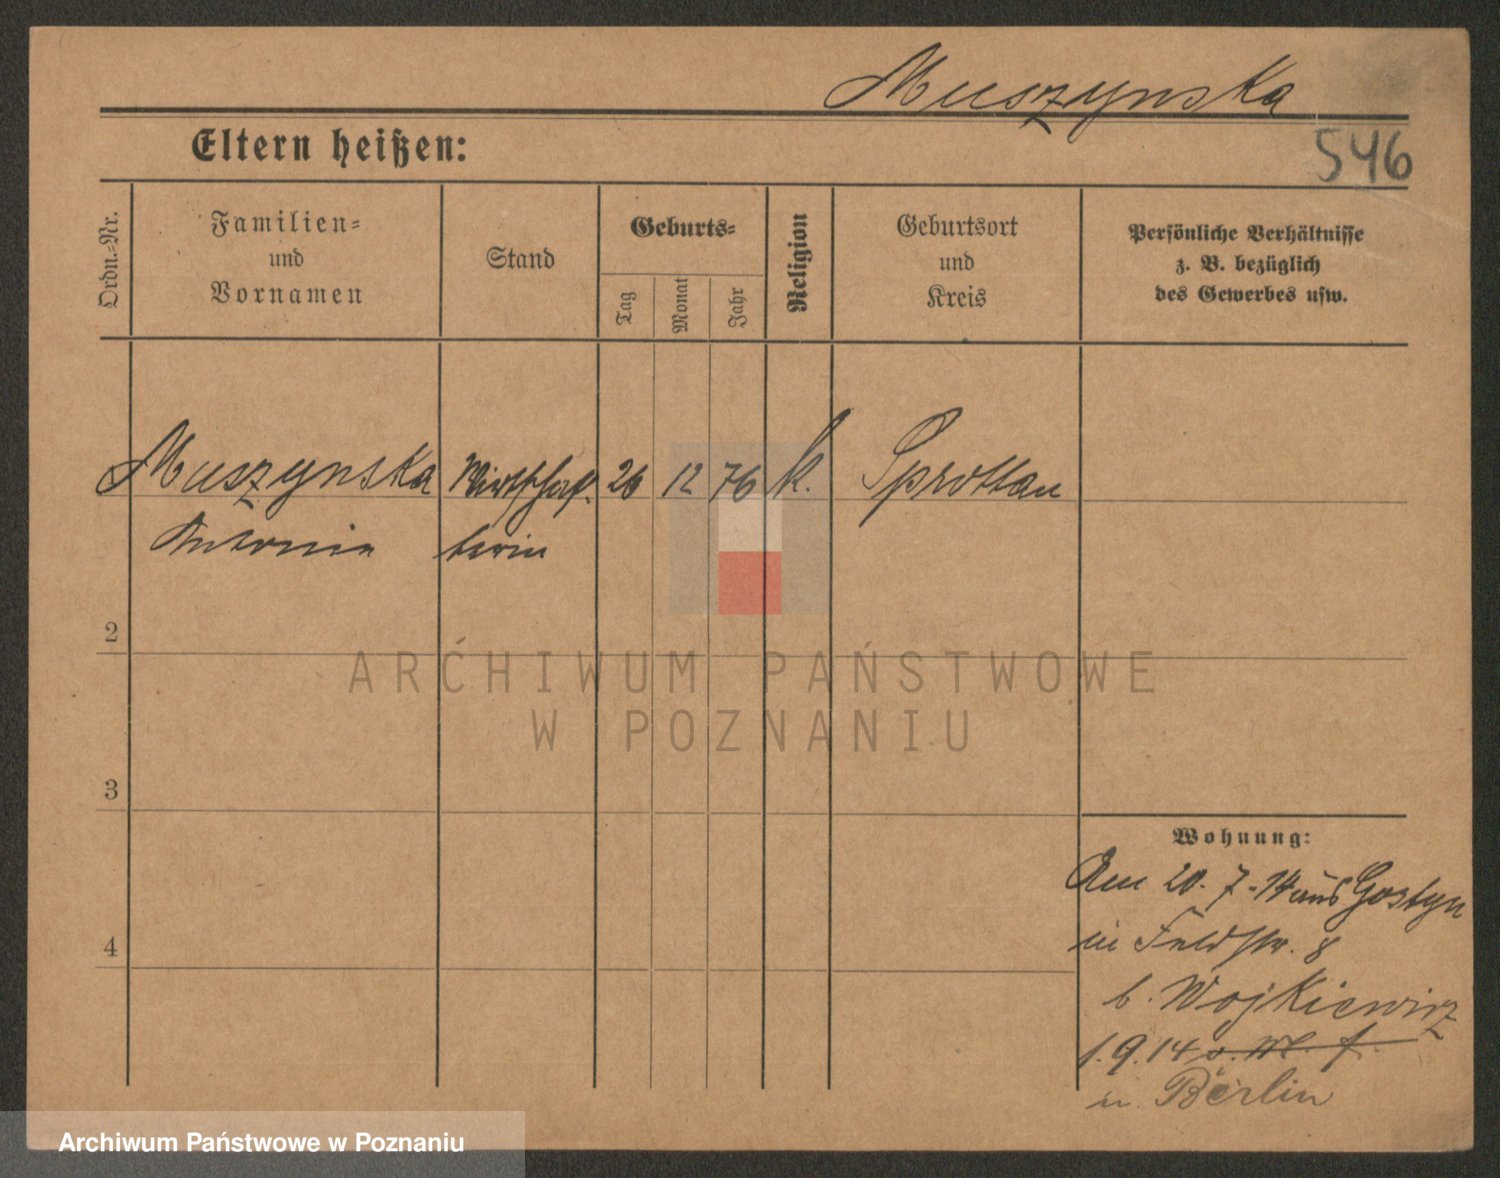 Muszynska
546
Eltern heißen:
Ordn.-Nr.
Familien-
und
Vornamen
Stand
Geburts-
Tag
Monat
Jahr
Religion
Geburtsort
und
Kreis
Persönliche Verhältnisse
z. B. bezüglich
des Gewerbes usw.
Muszynska Wirthschaf- 26 12 76 k. Sprottau
Antonie terin
2
3
4
Wohnung:
Am 20. 7. 14 aus Gostyn
in Feldstr. 8
b. Wojkiewicz
1. 9. 14
n. Berlin
ARCHIWUM PAŃSTWOWE
W POZNANIU
Archiwum Państwowe w Poznaniu